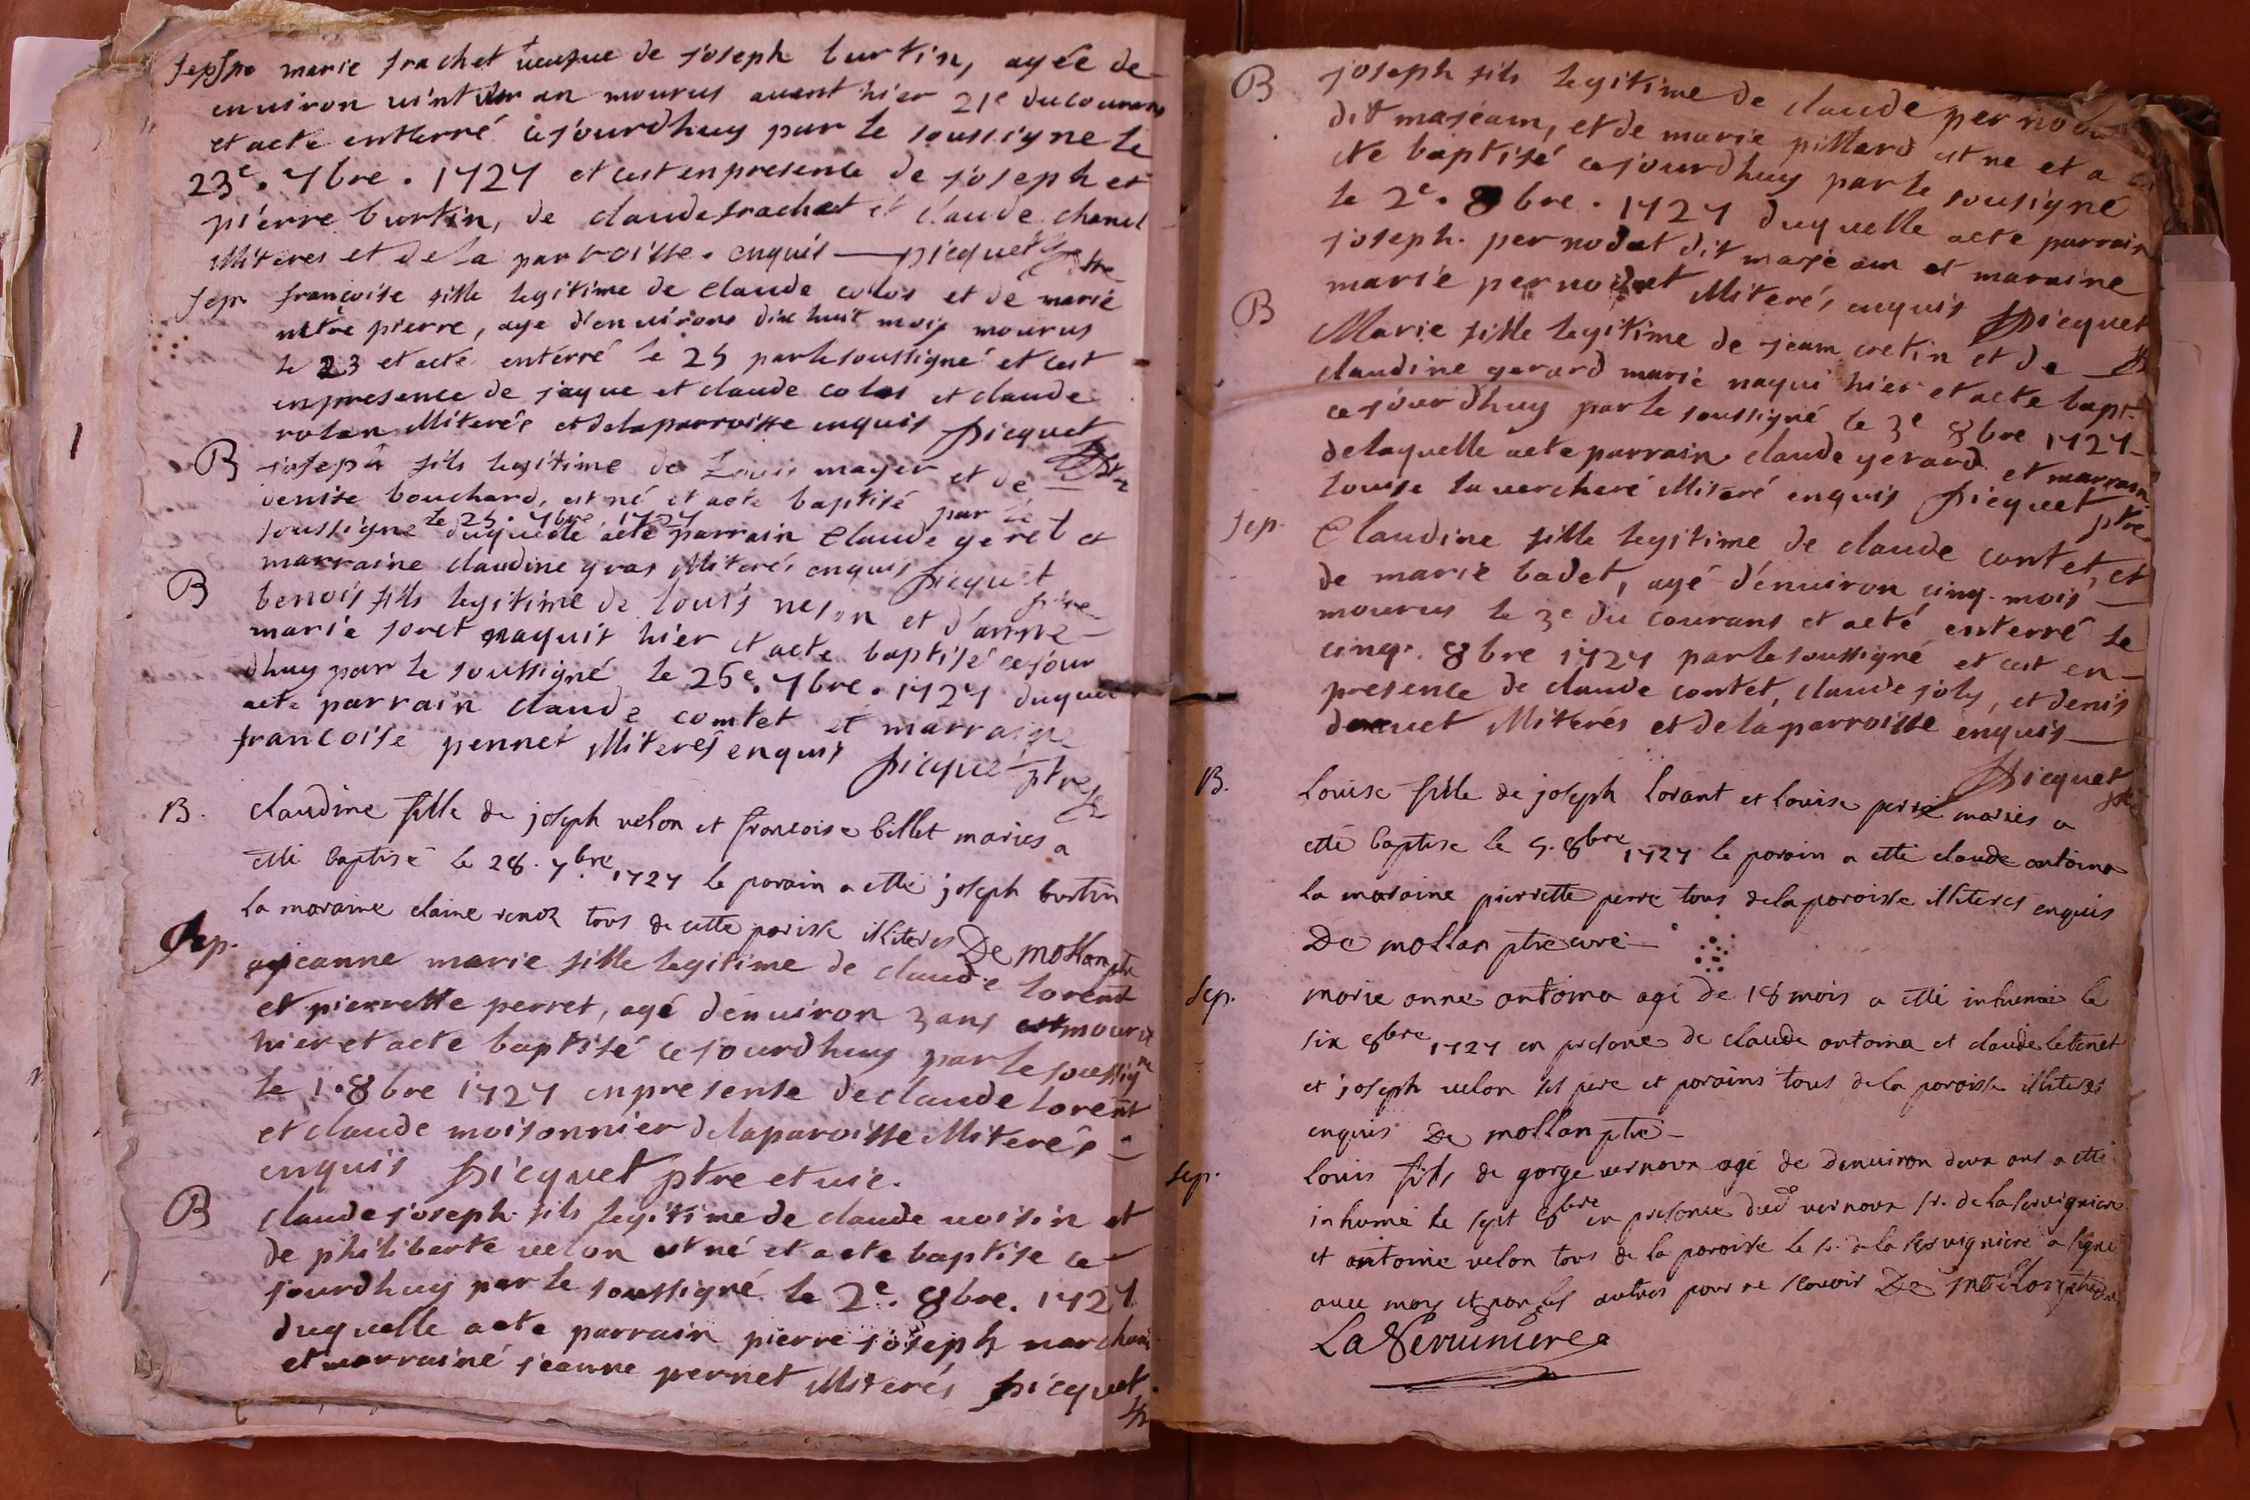 sep marie frachet veufve de joseph burtin, agée de
environ vint un an mourus avent hier 21e du courans
et acte entterré cejourdhuy par le soussigne le
23e. 7bre. 1727 et cest en presence de joseph et
pierre burtin, de claude frachet et claude chanel
illiteres et de la parroisse. enquis — picquet ptre
sep françoise fille legitime de claude colas et de marie
pierre, age d'environs dix huit mois mourus
le 23 et acté entérré le 25 par le soussigné et cest
en presence de jaque et claude colas et claude
rolan illiterés et de la parroisse enquis picquet
B joseph fils legitime de Louis mayer et de
denise bouchard, est né et acte baptisé par le
soussigne le 25. 7bre 1727 duquelle acté parrain Claude geret et
marraine claudine gras illiterés enquis picquet ptre
B benois fils legitime de louis neson et d'anne
marie foret naquit hier et acte baptisé cejour
dhuy par le soussigné le 26e. 7bre. 1727 duquel
acte parrain claude comtet et marraine
francoise pennet illiterés enquis picquet ptre
B. claudine fille de joseph velon et francoise billet maries a
etté baptisé le 28. 7.bre 1727 le parain a etté joseph burtin
la maraine claine renoz tous de cette parisse illiteres De mollan ptre
Sep. jeanne marie fille legitime de claude lorent
et pierrette perret, agé denviron 3 ans mourut
hier et acte baptisé cejourdhuy par le soussigne
le 1. 8bre 1727 en presense de claude lorent
et claude moisonnier de la paroisse illiterés
enquis picquet ptre et vic.
B claude joseph fils legitime de claude voisin et
de philiberte velon est né et acte baptise ce
jourdhuy par le soussigné le 2e. 8bre. 1727
duquelle acte parrain pierre joseph marchand
et marrainé jeanne pernet illiterés picquet
B joseph fils legitime de claude pernodat
dit majeam, et de marie pillard est ne et a
ete baptisé cejourdhuy par le sousigné
le 2e. 8bre. 1727 duquelle acte parrain
joseph. pernodat dit majeam et maraine
marie pernodat illiterés enquis picquet
B Marie fille legitime de jeam cretin et de
claudine gerard marie naqui hier et acte bapt.
cejourdhuy par le soussigné le 3e 8bre 1727
de laquelle acte parrain claude gerard et marrain
louise la vercheré illiteré enquis picquet ptre
sep. Claudine fille legitime de claude contet, et
de marie badet, agé d'environ cinq mois
mourus le 3e du courans et acté enterré le
cinq. 8bre 1727 par le soussigné et cest en
presence de claude contet, claude joly, et denis
illiterés et de la parroisse enquis
picquet
B. louise fille de joseph lorant et louise perré maries a
etté baptise le 5. 8bre 1727 le parain a etté claude antoina
la maraine pierrette perre tous de la paroisse illiteres enquis
De mollan ptre curé
Sep. marie anne antoina agé de 18 mois a etté inhumé le
six 8bre 1727 en presance de claude antoina et claude letenet
et joseph velon ses pere et parains tous de la paroisse illiteres
enquis De mollan ptre
sep. louis fils de gorge vernoux agé de denviron deux ans a etté
inhumé le sept 8bre en presance dud vernoux sr. de la servigniere
et antoine velon tous de la paroisse le sr. de la servigniere a signé
avec moy et non les autres pour ne scavoir De mollan
La Serviniere